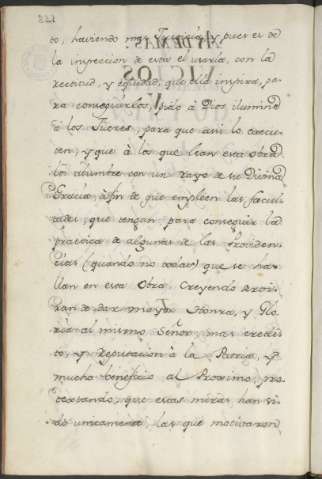 to, haviendo mas
la inspeccion de esto el usarla, con la
rectitud, y equidad, que ella inspira, pa-
ra conseguirlos, pido à Dios ilumine
à los Señores, para que asi lo execu-
ten, y que à los que lean esta Obra
los alumbre con un rayo de su Divina
Gracia, afin de que empleen las facul-
tades, que tengan para conseguir la
practica de algunas de las Providen-
cias (quando no todas) que se ha-
llan en esta Obra. Creyendo
han de dar mayor Honra, y Glo-
ria al mismo Señor, mas credi-
to, y reputacion à la Patria, y
mucho beneficio al Proximo, pro-
textando, que estas miras han si-
do unicamente, las que motivaron